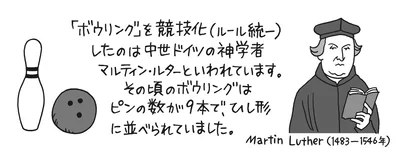 「ボウリング」を競技化(ルール統一)
したのは中世ドイツの神学者
マルティン・ルターといわれています。
その頃のボウリングは
ピンの数が9本で、ひし形
に並べられていました。
Martin Luther (1483–1546年)